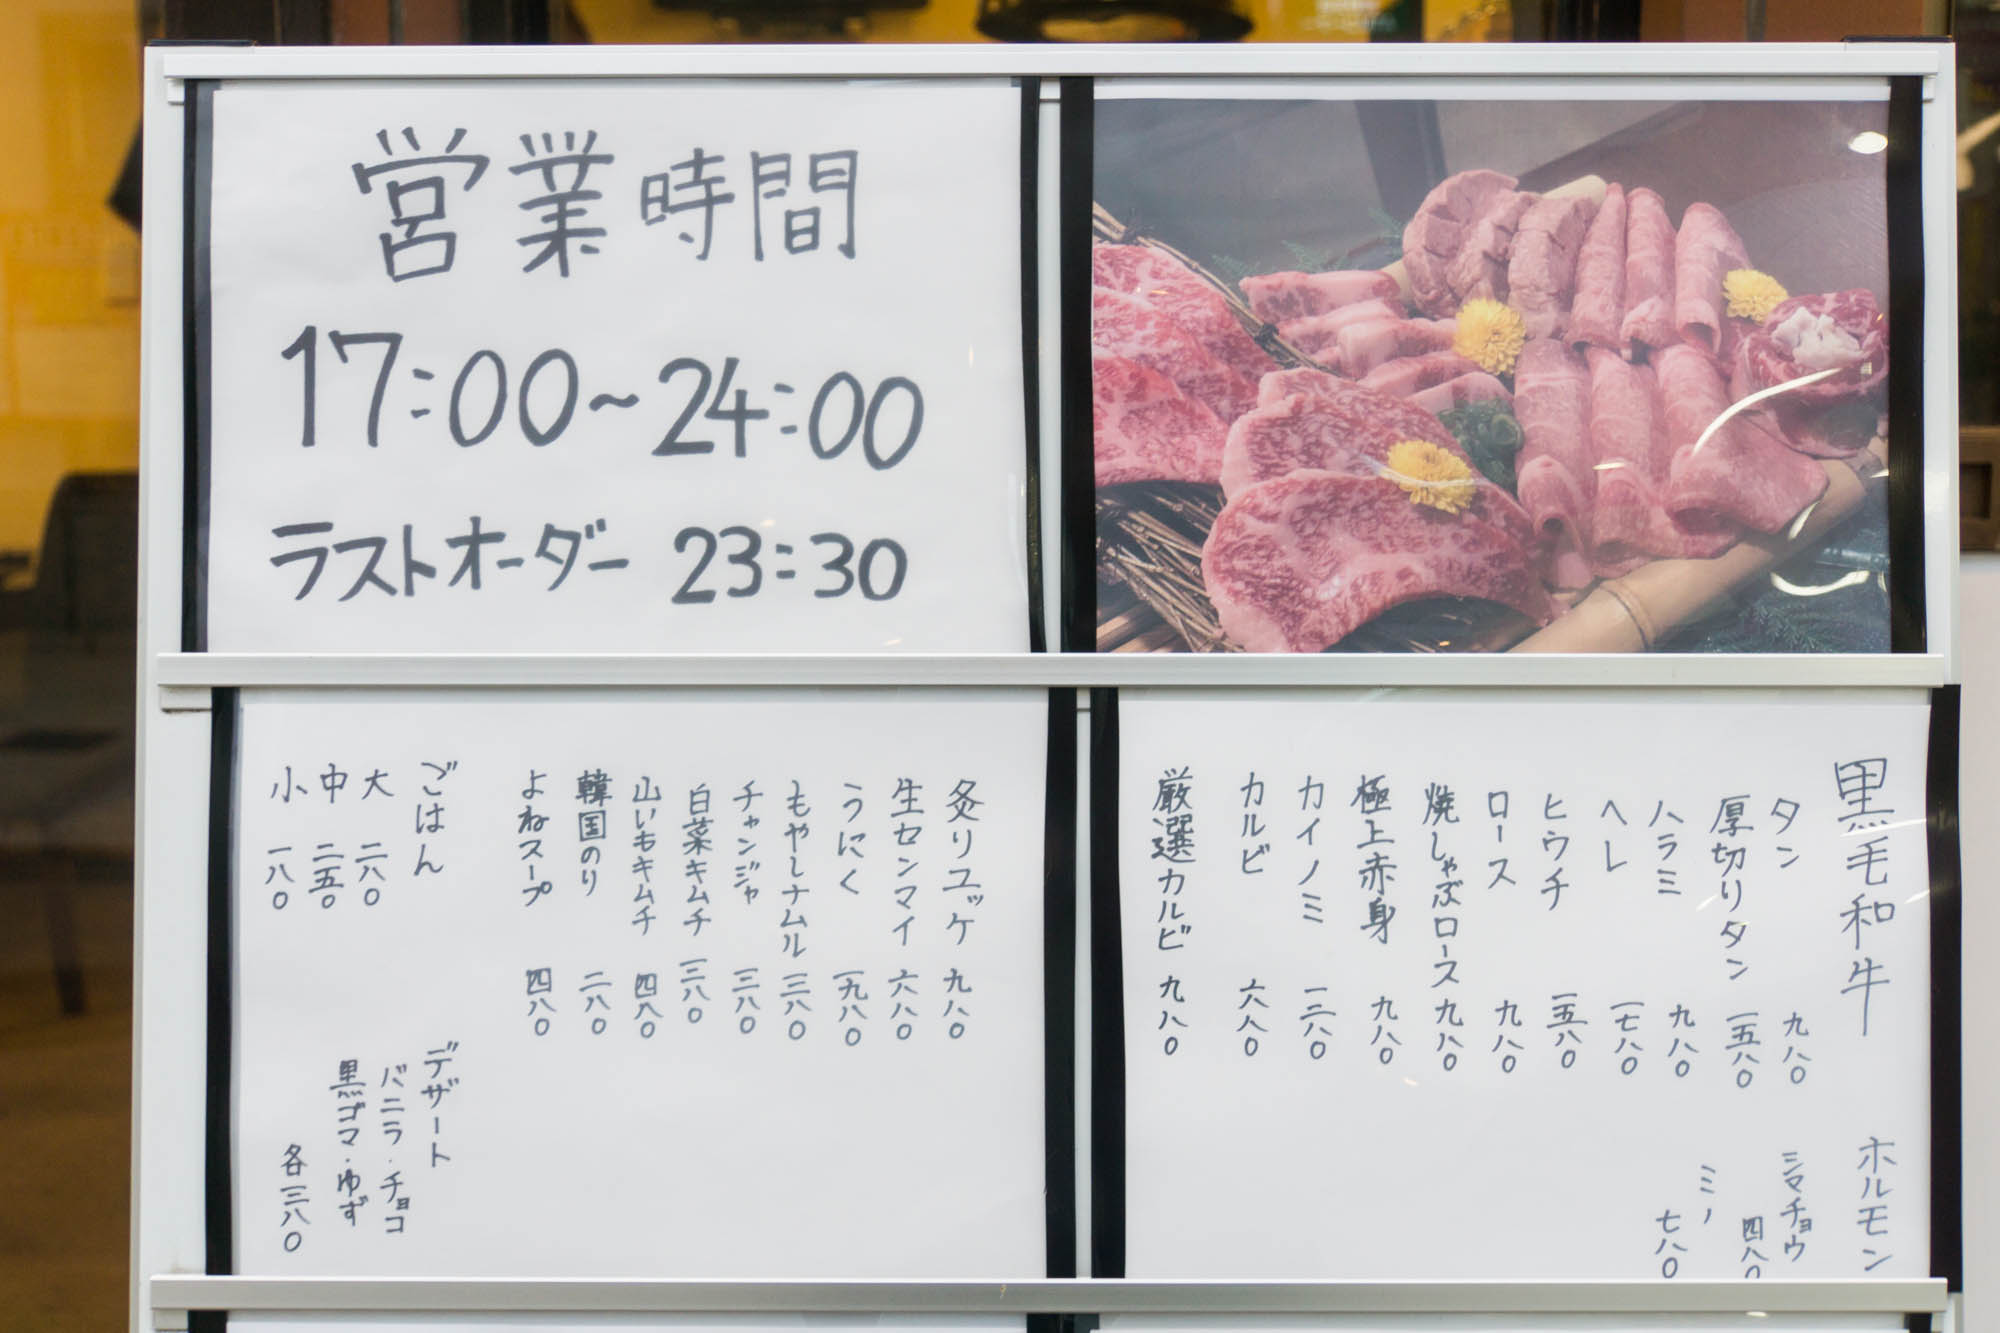 営業時間
17:00~24:00
ラストオーダー 23:30
黒毛和牛
タン 九八〇
厚切りタン 一五八〇
ハラミ 九八〇
ヘレ 一七八〇
ヒウチ 一五八〇
ロース 九八〇
焼しゃぶロース 九八〇
極上赤身 九八〇
カイノミ 一三八〇
カルビ 六八〇
厳選カルビ 九八〇
ホルモン
シマチョウ
四八〇
ミノ
七八〇
炙りユッケ 九八〇
生センマイ 六八〇
うにく 一九八〇
もやしナムル 三八〇
チャンジャ 三八〇
白菜キムチ 三八〇
山いもキムチ 四八〇
韓国のり 二八〇
よねスープ 四八〇
ごはん
大 二八〇
中 二五〇
小 一八〇
デザート
バニラ・チョコ
黒ゴマ・ゆず
各三八〇